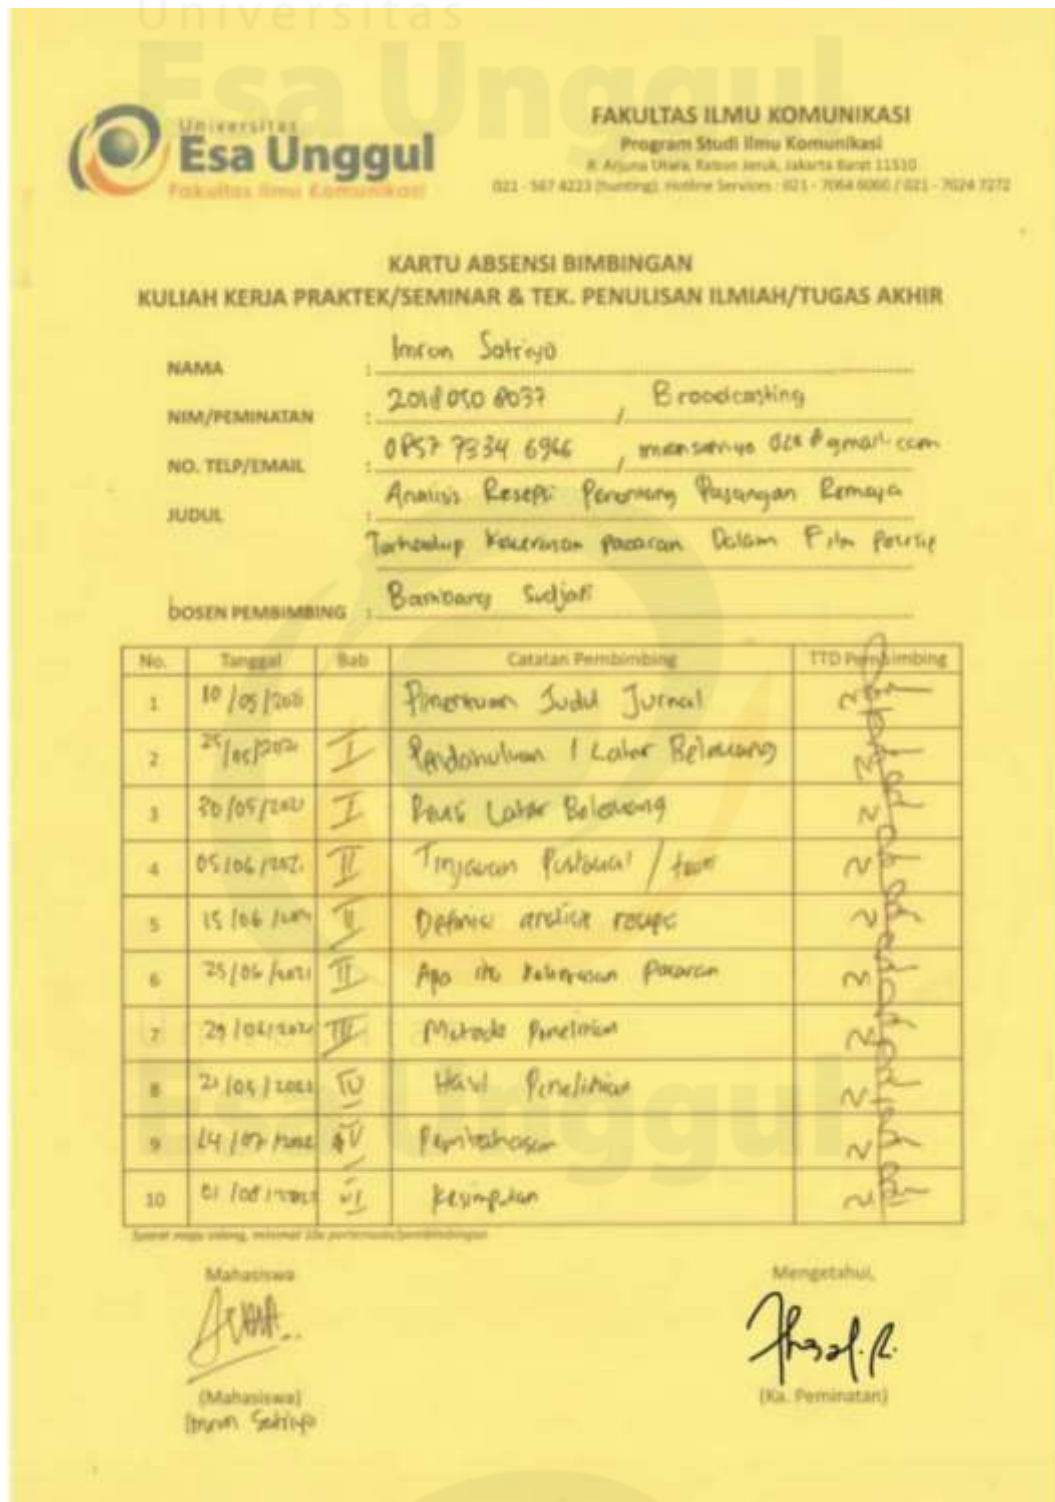 Universitas
Esa Unggul
Universitas
Esa Unggul
Fakultas Ilmu Komunikasi
FAKULTAS ILMU KOMUNIKASI
Program Studi Ilmu Komunikasi
Jl. Arjuna Utara, Kebon Jeruk, Jakarta Barat 11510
021 - 567 4223 (hunting), Hotline Services : 021 - 7064 6060 / 021 - 7024 7272
KARTU ABSENSI BIMBINGAN
KULIAH KERJA PRAKTEK/SEMINAR & TEK. PENULISAN ILMIAH/TUGAS AKHIR
NAMA : Imron Satriyo
NIM/PEMINATAN : 2018050 8037 / Broadcasting
NO. TELP/EMAIL : 0857 7334 6966 /
JUDUL : Analisis Resepsi Penonton Pasangan Remaja
Terhadap Kekerasan pacaran Dalam Film Posesif
DOSEN PEMBIMBING : Bambang Sudjati
No. Tanggal Bab Catatan Pembimbing TTD Pembimbing
1 10/05/ Penentuan Judul Jurnal
2 25/05/2021 I Pendahuluan / Latar Belakang
3 30/05/2021 I Revisi Latar Belakang
4 05/06/202 II Tinjauan /
5 15/06/ II Definisi analisis resepsi
6 25/06/2021 II Apa itu kekerasan pacaran
7 29/06/2021 III Metode Penelitian
8 /2022 IV Hasil Penelitian
9 /07/2022 V Pembahasan
10 01/08/2022 VI Kesimpulan
Syarat maju sidang, minimal 10x pertemuan/pembimbingan
Esa Unggul
Mahasiswa
Mengetahui,
(Mahasiswa)
Imron Satriyo
(Ka. Peminatan)